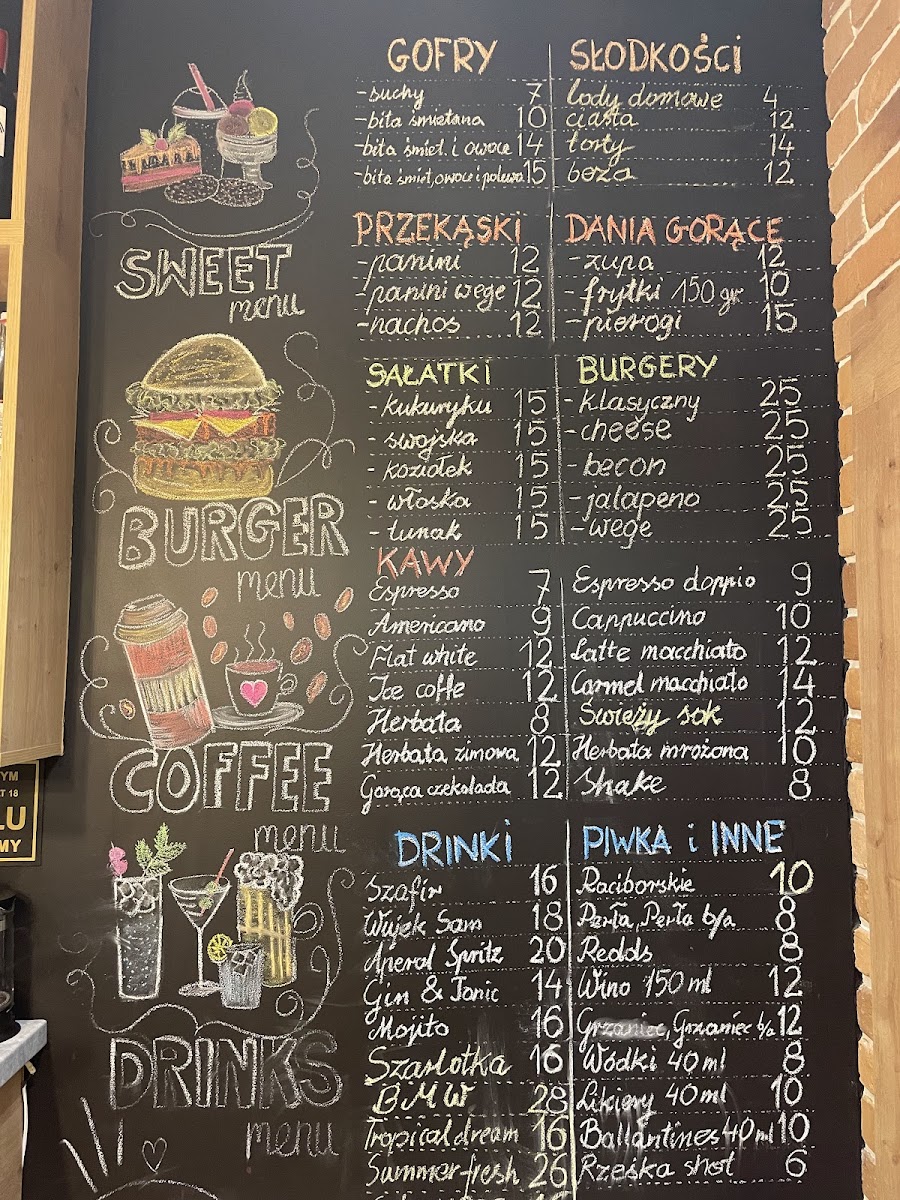 GOFRY
-suchy 7
-bita śmietana 10
-bita śmiet. i owoce 14
-bita śmiet, owoce i polewa 15
SŁODKOŚCI
lody domowe 4
ciasta 12
torty 14
beza 12
SWEET
menu
PRZEKĄSKI
-panini 12
-panini wege 12
-nachos 12
DANIA GORĄCE
-zupa 12
-frytki 150 gr 10
-pierogi 15
BURGER
menu
SAŁATKI
-kukuryku 15
-swojska 15
-koziołek 15
-włoska 15
-tunak 15
BURGERY
-klasyczny 25
-cheese 25
-becon 25
-jalapeno 25
-wege 25
COFFEE
menu
KAWY
Espresso 7
Americano 9
Flat white 12
Ice coffe 12
Herbata 8
Herbata zimowa 12
Gorąca czekolada 12
Espresso doppio 9
Cappuccino 10
Latte macchiato 12
Carmel macchiato 14
Świeży sok 12
Herbata mrożona 10
Shake 8
DRINKS
menu
DRINKI
Szafir 16
Wujek Sam 18
Aperol Spritz 20
Gin & Tonic 14
Mojito 16
Szarlotka 16
BMW 28
Tropical dream 16
Summer fresh 26
PIWKA i INNE
Raciborskie 10
Perła, Perła b/a 8
Redds 8
Wino 150 ml 12
Grzaniec, Grzaniec b/a 12
Wódki 40 ml 8
Likiery 40 ml 10
Ballantines 40 ml 10
Rześka shot 6
YM
T 18
LU
MY